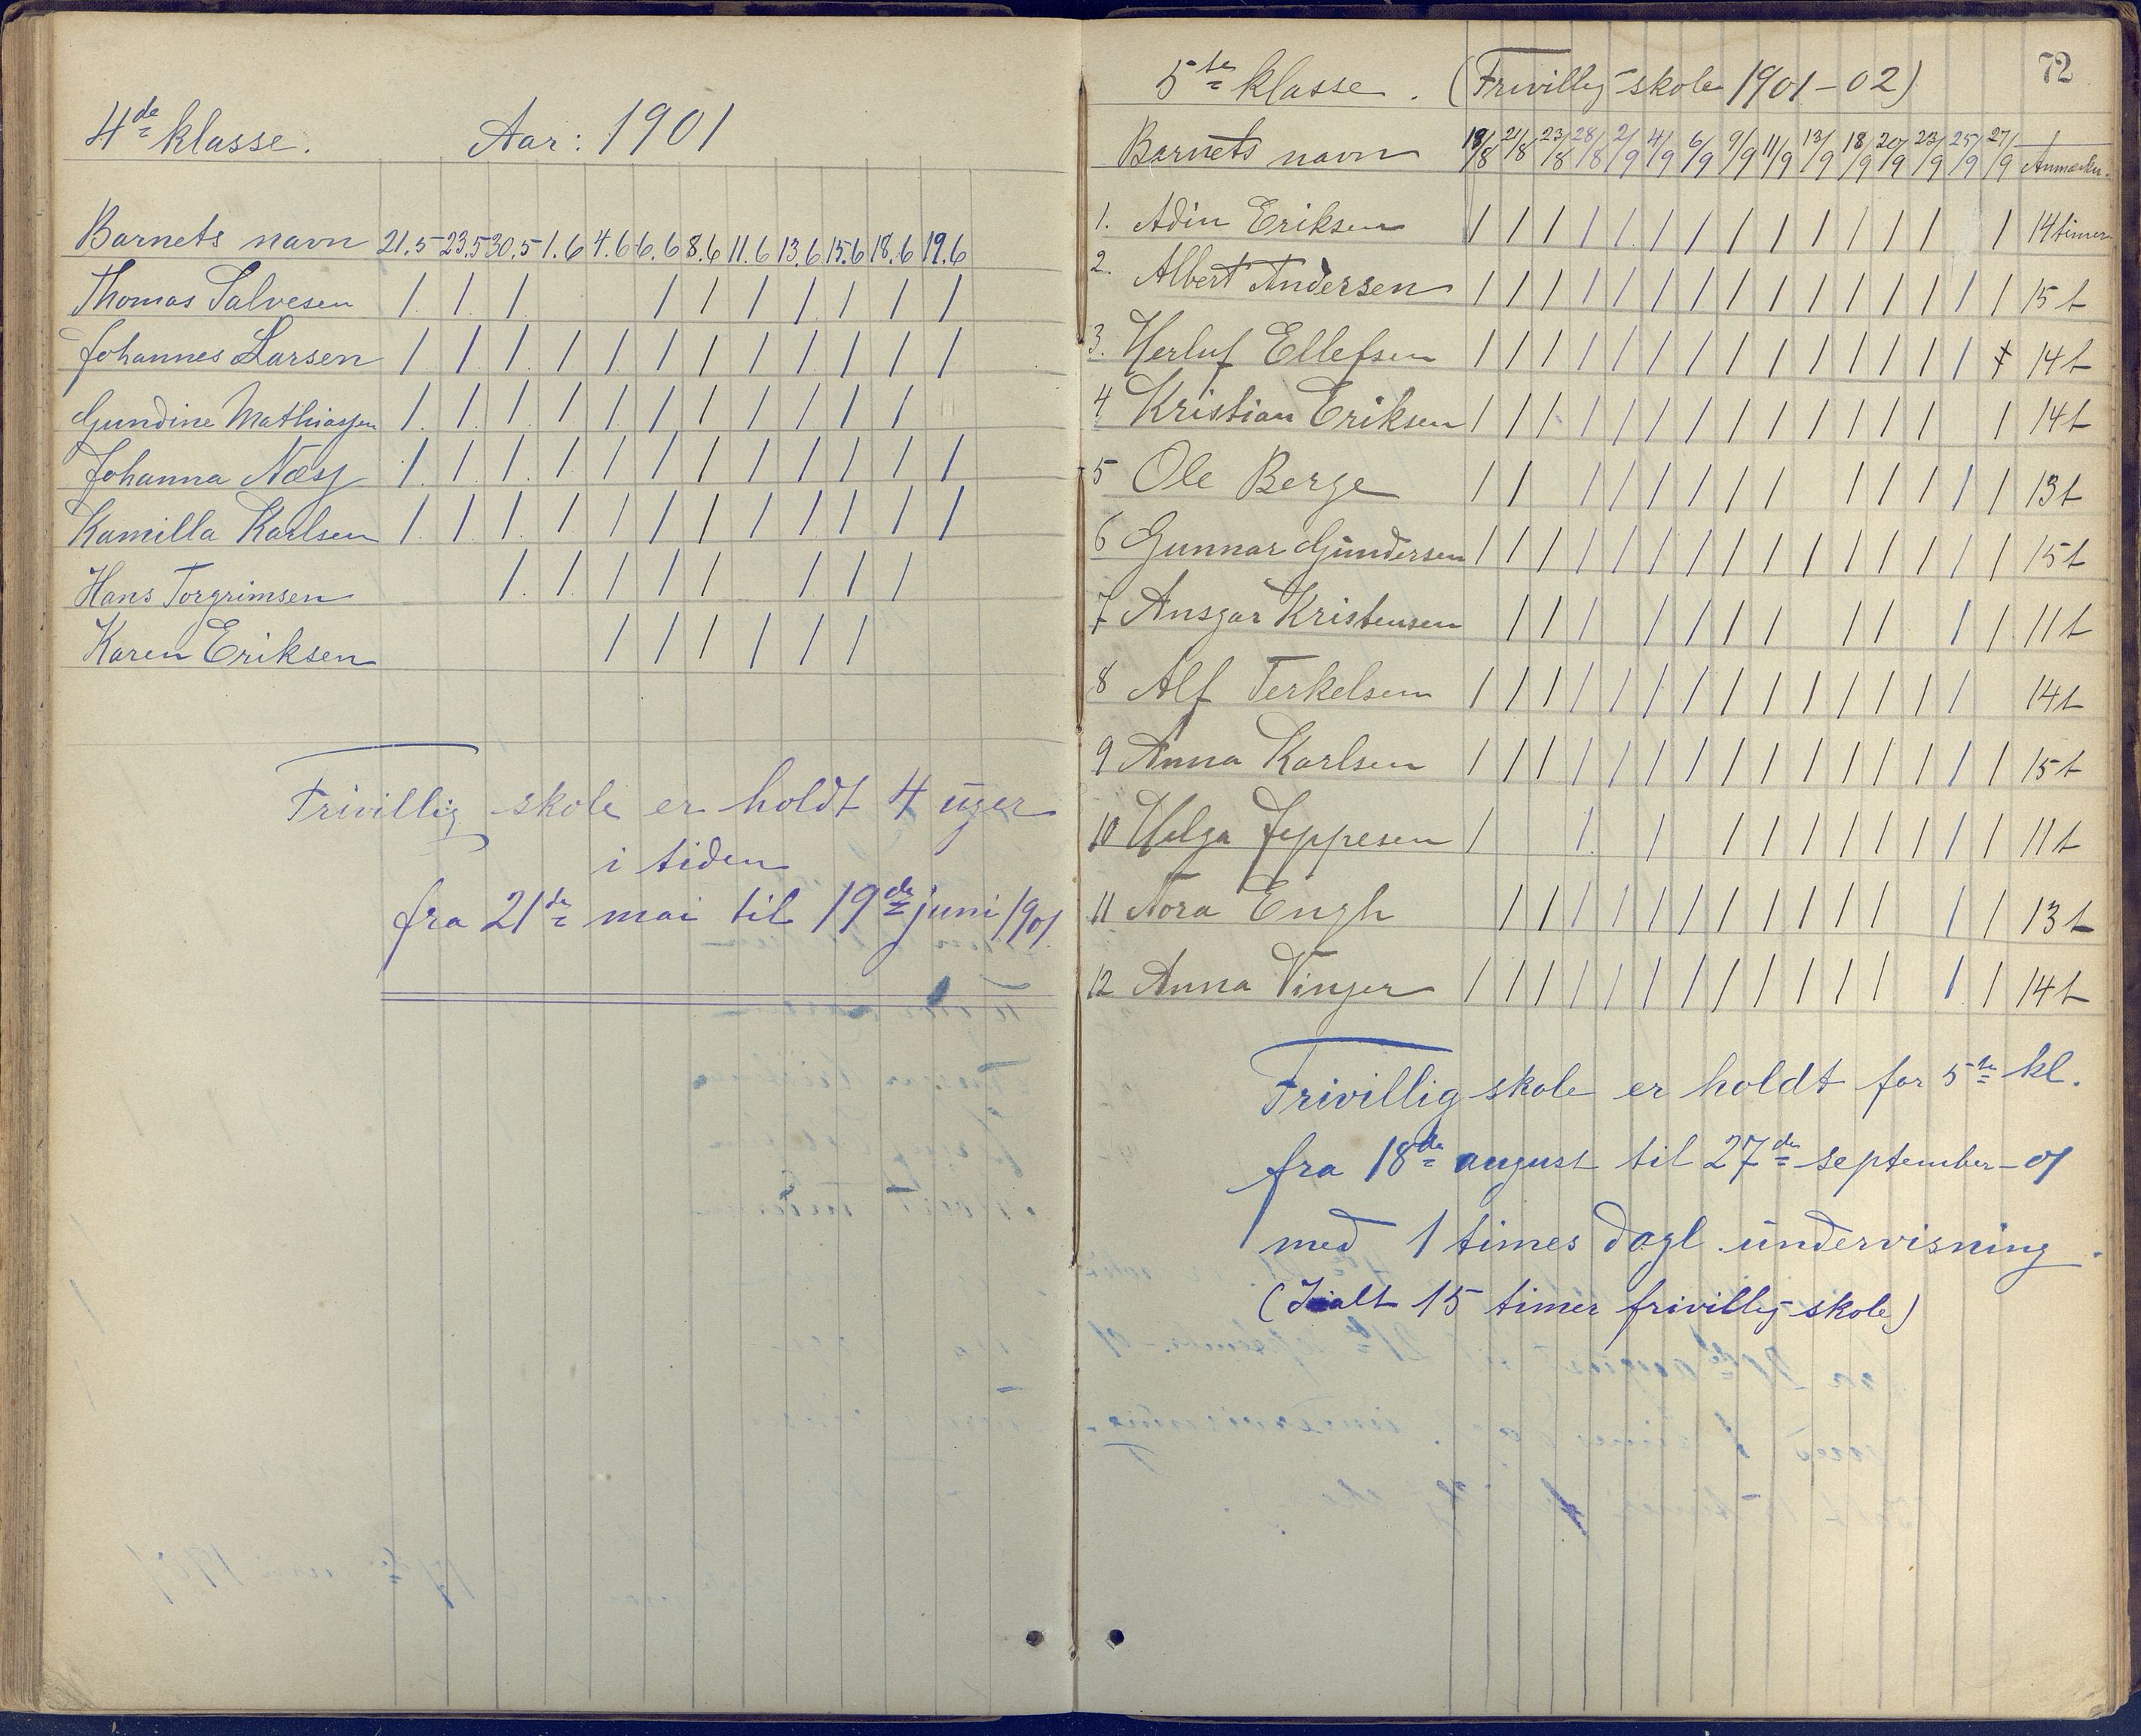 4de klasse. Aar: 1901
Barnets navn 21.5 23.5 30.5 1.6 4.6 6.6 8.6 11.6 13.6 15.6 18.6 19.6
Thomas Salvesen / / / / / / / / / /
Johannes Larsen / / / / / / / / / / / /
Gundine Mathiassen / / / / / / / / / / /
Johanna Næss / / / / / / / / / / / /
Kamilla Karlsen / / / / / / / / / / / /
Hans Torgrimsen / / / / / / / /
Karen Eriksen / / / / / /
Frivillig skole er holdt 4 uger
i tiden
fra 21de mai til 19de juni 1901.
72
5te klasse. (Frivillig skole 1901-02)
Barnets navn 18/8 21/8 23/8 28/8 2/9 4/9 6/9 9/9 11/9 13/9 18/9 20/9 23/9 25/9 27/9 Anmærkn.
1. Adin Eriksen / / / / / / / / / / / / / / 14 timer
2. Albert Andersen / / / / / / / / / / / / / / / 15 t
3. Herluf Ellefsen / / / / / / / / / / / / / / 14 t
4 Kristian Eriksen / / / / / / / / / / / / / / 14 t
5 Ole Berge / / / / / / / / / / / / / 13 t
6 Gunnar Gundersen / / / / / / / / / / / / / / / 15 t
7 Ansgar Kristensen / / / / / / / / / / / 11 t
8 Alf Terkelsen / / / / / / / / / / / / / / 14 t
9 Anna Karlsen / / / / / / / / / / / / / / / 15 t
10 Helga Jeppesen / / / / / / / / / / / 11 t
11 Nora Engh / / / / / / / / / / / / / 13 t
12 Anna Vinger / / / / / / / / / / / / / / 14 t
Frivillig skole er holdt for 5te kl.
fra 18de august til 27de september - 01
med 1 times dagl. undervisning.
(Ialt 15 timer frivillig skole)